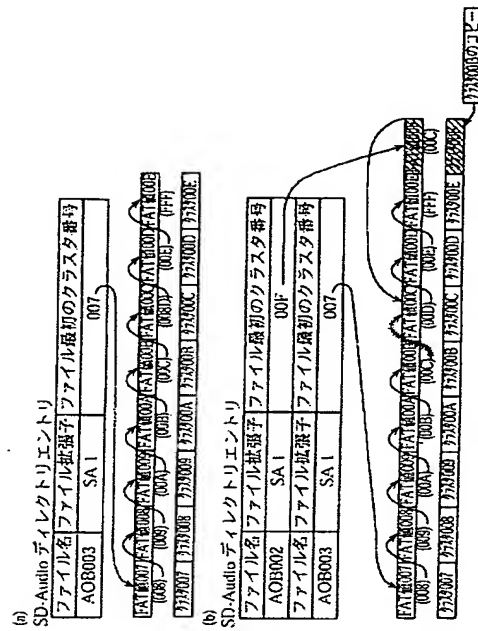 (a)
SD-Audioディレクトリエントリ
ファイル名 ファイル拡張子 ファイル最初のクラスタ番号
AOB003 SA1 007
FAT値007 FAT値008 FAT値009 FAT値00A FAT値00B FAT値00C FAT値00D FAT値00E
(008) (009) (00A) (00B) (00C) (00D) (00E) (FFF)
クラスタ007 クラスタ008 クラスタ009 クラスタ00A クラスタ00B クラスタ00C クラスタ00D クラスタ00E
(b)
SD-Audioディレクトリエントリ
ファイル名 ファイル拡張子 ファイル最初のクラスタ番号
AOB002 SA1 00F
ファイル名 ファイル拡張子 ファイル最初のクラスタ番号
AOB003 SA1 007
FAT値007 FAT値008 FAT値009 FAT値00A FAT値00B FAT値00C FAT値00D FAT値00E
(008) (009) (00A) (00B) (00C) (00D) (00E) (FFF) (00C)
クラスタ007 クラスタ008 クラスタ009 クラスタ00A クラスタ00B クラスタ00C クラスタ00D クラスタ00E
クラスタ00Bのコピー